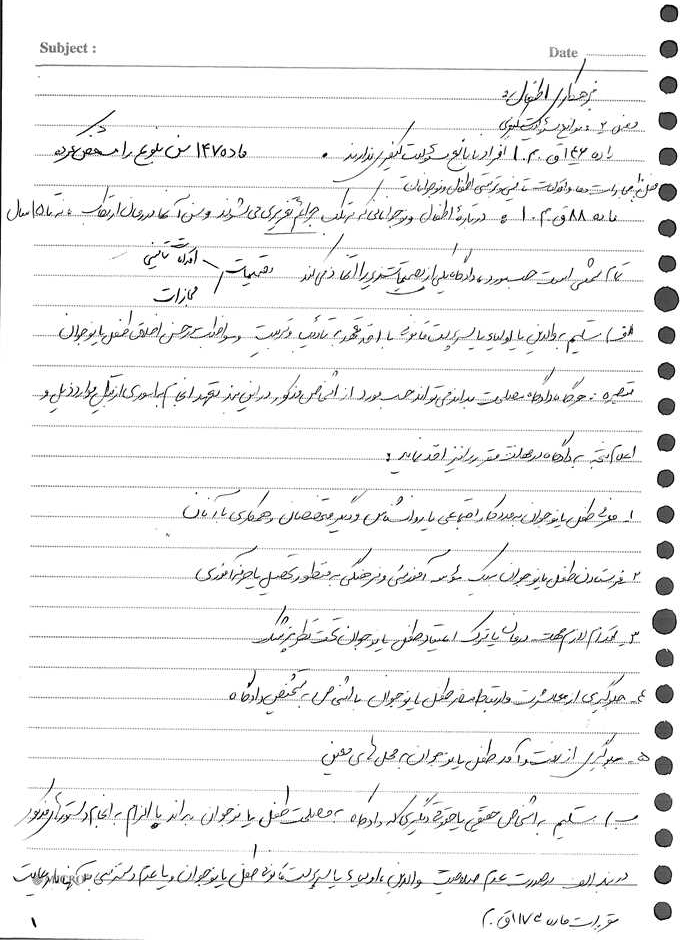 Subject :
Date
بزهکاری اطفال :
بخش ۲ : موانع مسئولیت کیفری
ماده ۱۴۶ ق.م.ا افراد نابالغ مسئولیت کیفری ندارند . ماده ۱۴۷ سن بلوغ را مشخص کرده
فصل ۱۰ مجازات ها و اقدامات تامینی و تربیتی اطفال و نوجوانان
ماده ۸۸ ق.م.ا : درباره اطفال و نوجوانانی که مرتکب جرائم تعزیری می شوند و سن آنها در زمان ارتکاب ، نه تا ۱۵ سال
تمام شمسی است حسب مورد ، دادگاه یکی از تصمیمات زیر را اتخاذ می کند تصمیمات
اقدامات تامینی
مجازات
الف ) تسلیم به والدین یا اولیاء یا سرپرست قانونی با اخذ تعهد به تادیب و تربیت و مواظبت در حسن اخلاق طفل یا نوجوان
تبصره : هرگاه دادگاه مصلحت بداند می تواند حسب مورد از اشخاص مذکور در این بند تعهد انجام اموری از قبیل موارد ذیل و
اعلام نتیجه به دادگاه در مهلت مقرر را نیز اخذ نماید :
۱- معرفی طفل یا نوجوان به مددکار اجتماعی یا روانشناس و دیگر متخصصان و همکاری با آنان
۲- فرستادن طفل یا نوجوان به یک موسسه آموزشی و فرهنگی به منظور تحصیل یا حرفه آموزی
۳- اقدام لازم جهت درمان یا ترک اعتیاد طفل یا نوجوان تحت نظر پزشک
۴- جلوگیری از معاشرت و ارتباط مضر طفل یا نوجوان با اشخاص به تشخیص دادگاه
۵- جلوگیری از رفت و آمد طفل یا نوجوان به محل های معین
ب ) تسلیم به اشخاص حقیقی یا حقوقی دیگری که دادگاه به مصلحت طفل یا نوجوان بداند با الزام به انجام دستورهای مذکور
در بند الف در صورت عدم صلاحیت والدین ، اولیاء یا سرپرست قانونی طفل یا نوجوان و یا عدم دسترسی به آنها با رعایت
مقررات ماده ۱۱۷۳ ق.
MICRO
۱